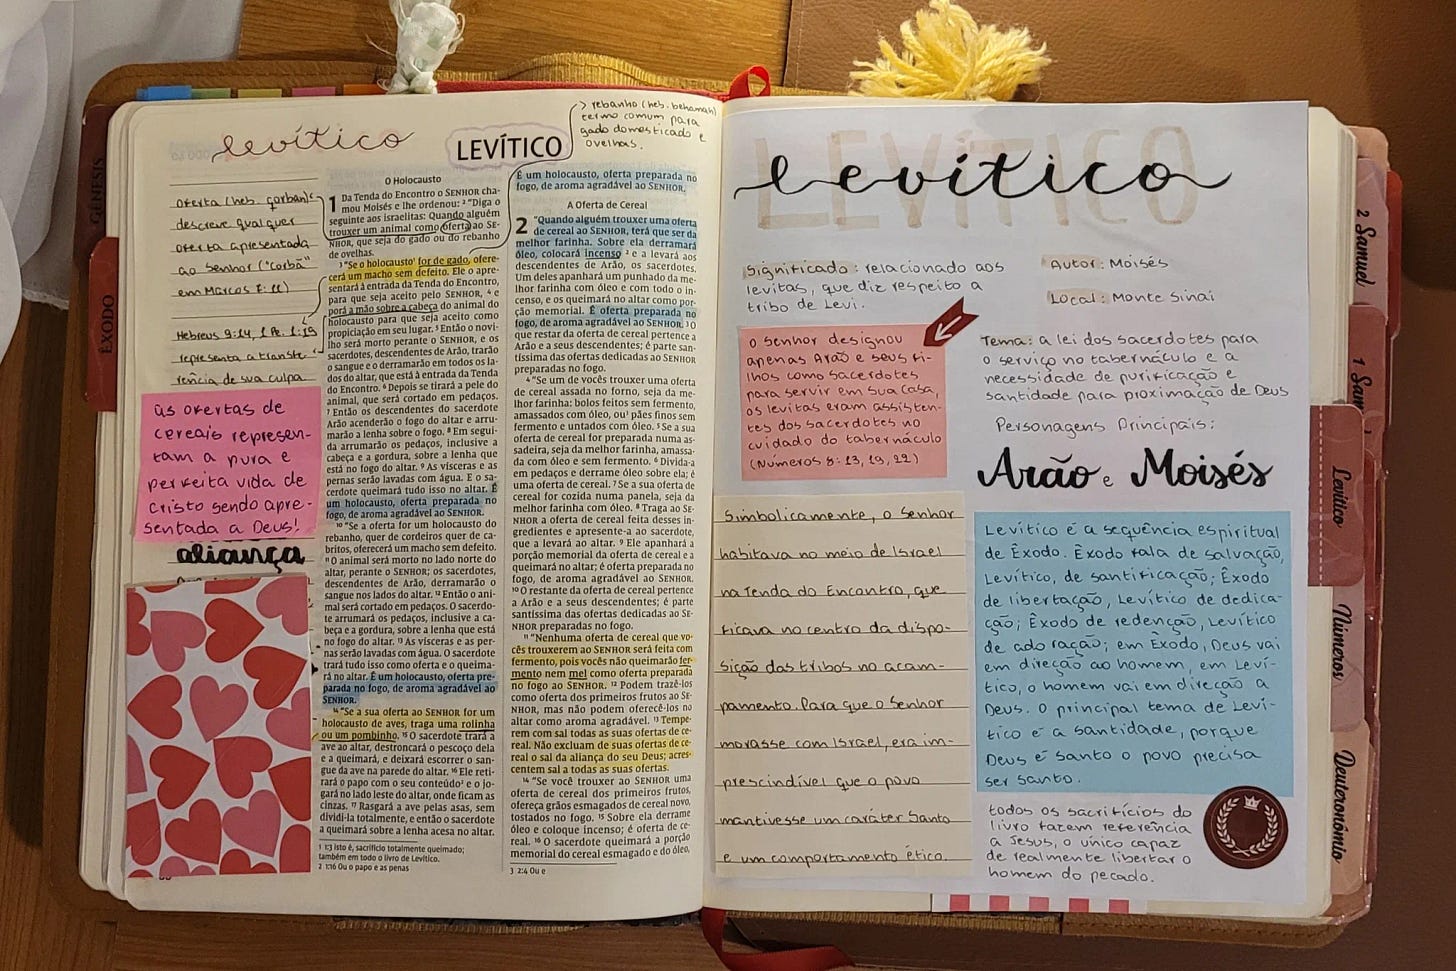 levítico
oferta (heb. qorban):
descreve qualquer
oferta apresentada
ao Senhor ("Corbã"
em Marcos 7:11)
Hebreus 9:14, 1 Pe. 1:19
representa a transfe-
rência de sua culpa
as ofertas de
cereais represen-
tam a pura e
perfeita vida de
Cristo sendo apre-
sentada a Deus!
aliança
GÊNESIS
ÊXODO
LEVÍTICO
> rebanho (heb. behamah)
termo comum para
gado domesticado e
ovelhas.
O Holocausto
1 Da Tenda do Encontro o SENHOR cha-
mou Moisés e lhe ordenou: 2 "Diga o
seguinte aos israelitas: Quando alguém
trouxer um animal como oferta ao SE-
NHOR, que seja do gado ou do rebanho
de ovelhas.
3 "Se o holocausto¹ for de gado, ofere-
cerá um macho sem defeito. Ele o apre-
sentará à entrada da Tenda do Encontro,
para que seja aceito pelo SENHOR, 4 e
porá a mão sobre a cabeça do animal do
holocausto para que seja aceito como
propiciação em seu lugar. 5 Então o novi-
lho será morto perante o SENHOR, e os
sacerdotes, descendentes de Arão, trarão
o sangue e o derramarão em todos os la-
dos do altar, que está à entrada da Tenda
do Encontro. 6 Depois se tirará a pele do
animal, que será cortado em pedaços.
7 Então os descendentes do sacerdote
Arão acenderão o fogo do altar e arru-
marão a lenha sobre o fogo. 8 Em segui-
da arrumarão os pedaços, inclusive a
cabeça e a gordura, sobre a lenha que
está no fogo do altar. 9 As vísceras e as
pernas serão lavadas com água. E o sa-
cerdote queimará tudo isso no altar. É
um holocausto, oferta preparada no
fogo, de aroma agradável ao SENHOR.
10 "Se a oferta for um holocausto do
rebanho, quer de cordeiros quer de ca-
britos, oferecerá um macho sem defeito.
11 O animal será morto no lado norte do
altar, perante o SENHOR; os sacerdotes,
descendentes de Arão, derramarão o
sangue nos lados do altar. 12 Então o ani-
mal será cortado em pedaços. O sacerdo-
te arrumará os pedaços, inclusive a ca-
beça e a gordura, sobre a lenha que está
no fogo do altar. 13 As vísceras e as per-
nas serão lavadas com água. O sacerdote
trará tudo isso como oferta e o queima-
rá no altar. É um holocausto, oferta pre-
parada no fogo, de aroma agradável ao
SENHOR.
14 "Se a sua oferta ao SENHOR for um
holocausto de aves, traga uma rolinha
ou um pombinho. 15 O sacerdote trará a
ave ao altar, destroncará o pescoço dela
e a queimará, e deixará escorrer o san-
gue da ave na parede do altar. 16 Ele reti-
rará o papo com o seu conteúdo² e o jo-
gará no lado leste do altar, onde ficam as
cinzas. 17 Rasgará a ave pelas asas, sem
dividi-la totalmente, e então o sacerdote
a queimará sobre a lenha acesa no altar.
1 1:3 Isto é, sacrifício totalmente queimado;
também em todo o livro de Levítico.
2 1:16 Ou o papo e as penas
É um holocausto, oferta preparada no
fogo, de aroma agradável ao SENHOR.
A Oferta de Cereal
2 "Quando alguém trouxer uma oferta
de cereal ao SENHOR, terá que ser da
melhor farinha. Sobre ela derramará
óleo, colocará incenso 2 e a levará aos
descendentes de Arão, os sacerdotes.
Um deles apanhará um punhado da me-
lhor farinha com óleo e com todo o in-
censo, e os queimará no altar como por-
ção memorial. É oferta preparada no
fogo, de aroma agradável ao SENHOR. 3 O
que restar da oferta de cereal pertence a
Arão e a seus descendentes; é parte san-
tíssima das ofertas dedicadas ao SENHOR
preparadas no fogo.
4 "Se um de vocês trouxer uma oferta
de cereal assada no forno, seja da me-
lhor farinha: bolos feitos sem fermento,
amassados com óleo, ou³ pães finos sem
fermento e untados com óleo. 5 Se a sua
oferta de cereal for preparada numa as-
sadeira, seja da melhor farinha, amassa-
da com óleo e sem fermento. 6 Divida-a
em pedaços e derrame óleo sobre ela; é
uma oferta de cereal. 7 Se a sua oferta de
cereal for cozida numa panela, seja da
melhor farinha com óleo. 8 Traga ao SE-
NHOR a oferta de cereal feita desses in-
gredientes e apresente-a ao sacerdote,
que a levará ao altar. 9 Ele apanhará a
porção memorial da oferta de cereal e a
queimará no altar; é oferta preparada
no fogo, de aroma agradável ao SENHOR.
10 O restante da oferta de cereal pertence
a Arão e a seus descendentes; é parte
santíssima das ofertas dedicadas ao SE-
NHOR preparadas no fogo.
11 "Nenhuma oferta de cereal que vo-
cês trouxerem ao SENHOR será feita com
fermento, pois vocês não queimarão fer-
mento nem mel como oferta preparada
no fogo ao SENHOR. 12 Podem trazê-los
como oferta dos primeiros frutos ao SE-
NHOR, mas não podem oferecê-los no
altar como aroma agradável. 13 Tempe-
rem com sal todas as suas ofertas de ce-
real. Não excluam de suas ofertas de ce-
real o sal da aliança do seu Deus; acres-
centem sal a todas as suas ofertas.
14 "Se você trouxer ao SENHOR uma
oferta de cereal dos primeiros frutos,
ofereça grãos esmagados de cereal novo,
tostados no fogo. 15 Sobre ela derrame
óleo e coloque incenso; é oferta de ce-
real. 16 O sacerdote queimará a porção
memorial do cereal esmagado e do óleo,
3 2:4 Ou e
LEVÍTICO
levítico
Significado: relacionado aos
levitas, que diz respeito a
tribo de Levi.
Autor: Moisés
Local: Monte Sinai
O Senhor designou
apenas Arão e seus fi-
lhos como sacerdotes
para servir em sua casa,
os levitas eram assisten-
tes dos sacerdotes no
cuidado do tabernáculo
(Números 8:13, 19, 22)
Tema: a lei dos sacerdotes para
o serviço no tabernáculo e a
necessidade de purificação e
santidade para proximação de Deus
Personagens Principais:
Arão e Moisés
Simbolicamente, o Senhor
habitava no meio de Israel
na Tenda do Encontro, que
ficava no centro da dispo-
sição das tribos no acam-
pamento. Para que o Senhor
morasse com Israel, era im-
prescindível que o povo
mantivesse um caráter santo
e um comportamento ético.
Levítico é a sequência espiritual
de Êxodo. Êxodo fala de salvação,
Levítico, de santificação; Êxodo
de libertação, Levítico de dedica-
ção; Êxodo de redenção, Levítico
de adoração; em Êxodo, Deus vai
em direção ao homem, em Leví-
tico, o homem vai em direção a
Deus. O principal tema de Leví-
tico é a santidade, porque
Deus é santo o povo precisa
ser santo.
todos os sacrifícios do
livro fazem referência
a Jesus, o único capaz
de realmente libertar o
homem do pecado.
2 Samuel
1 Sam
Levítico
Números
Deuteronômio